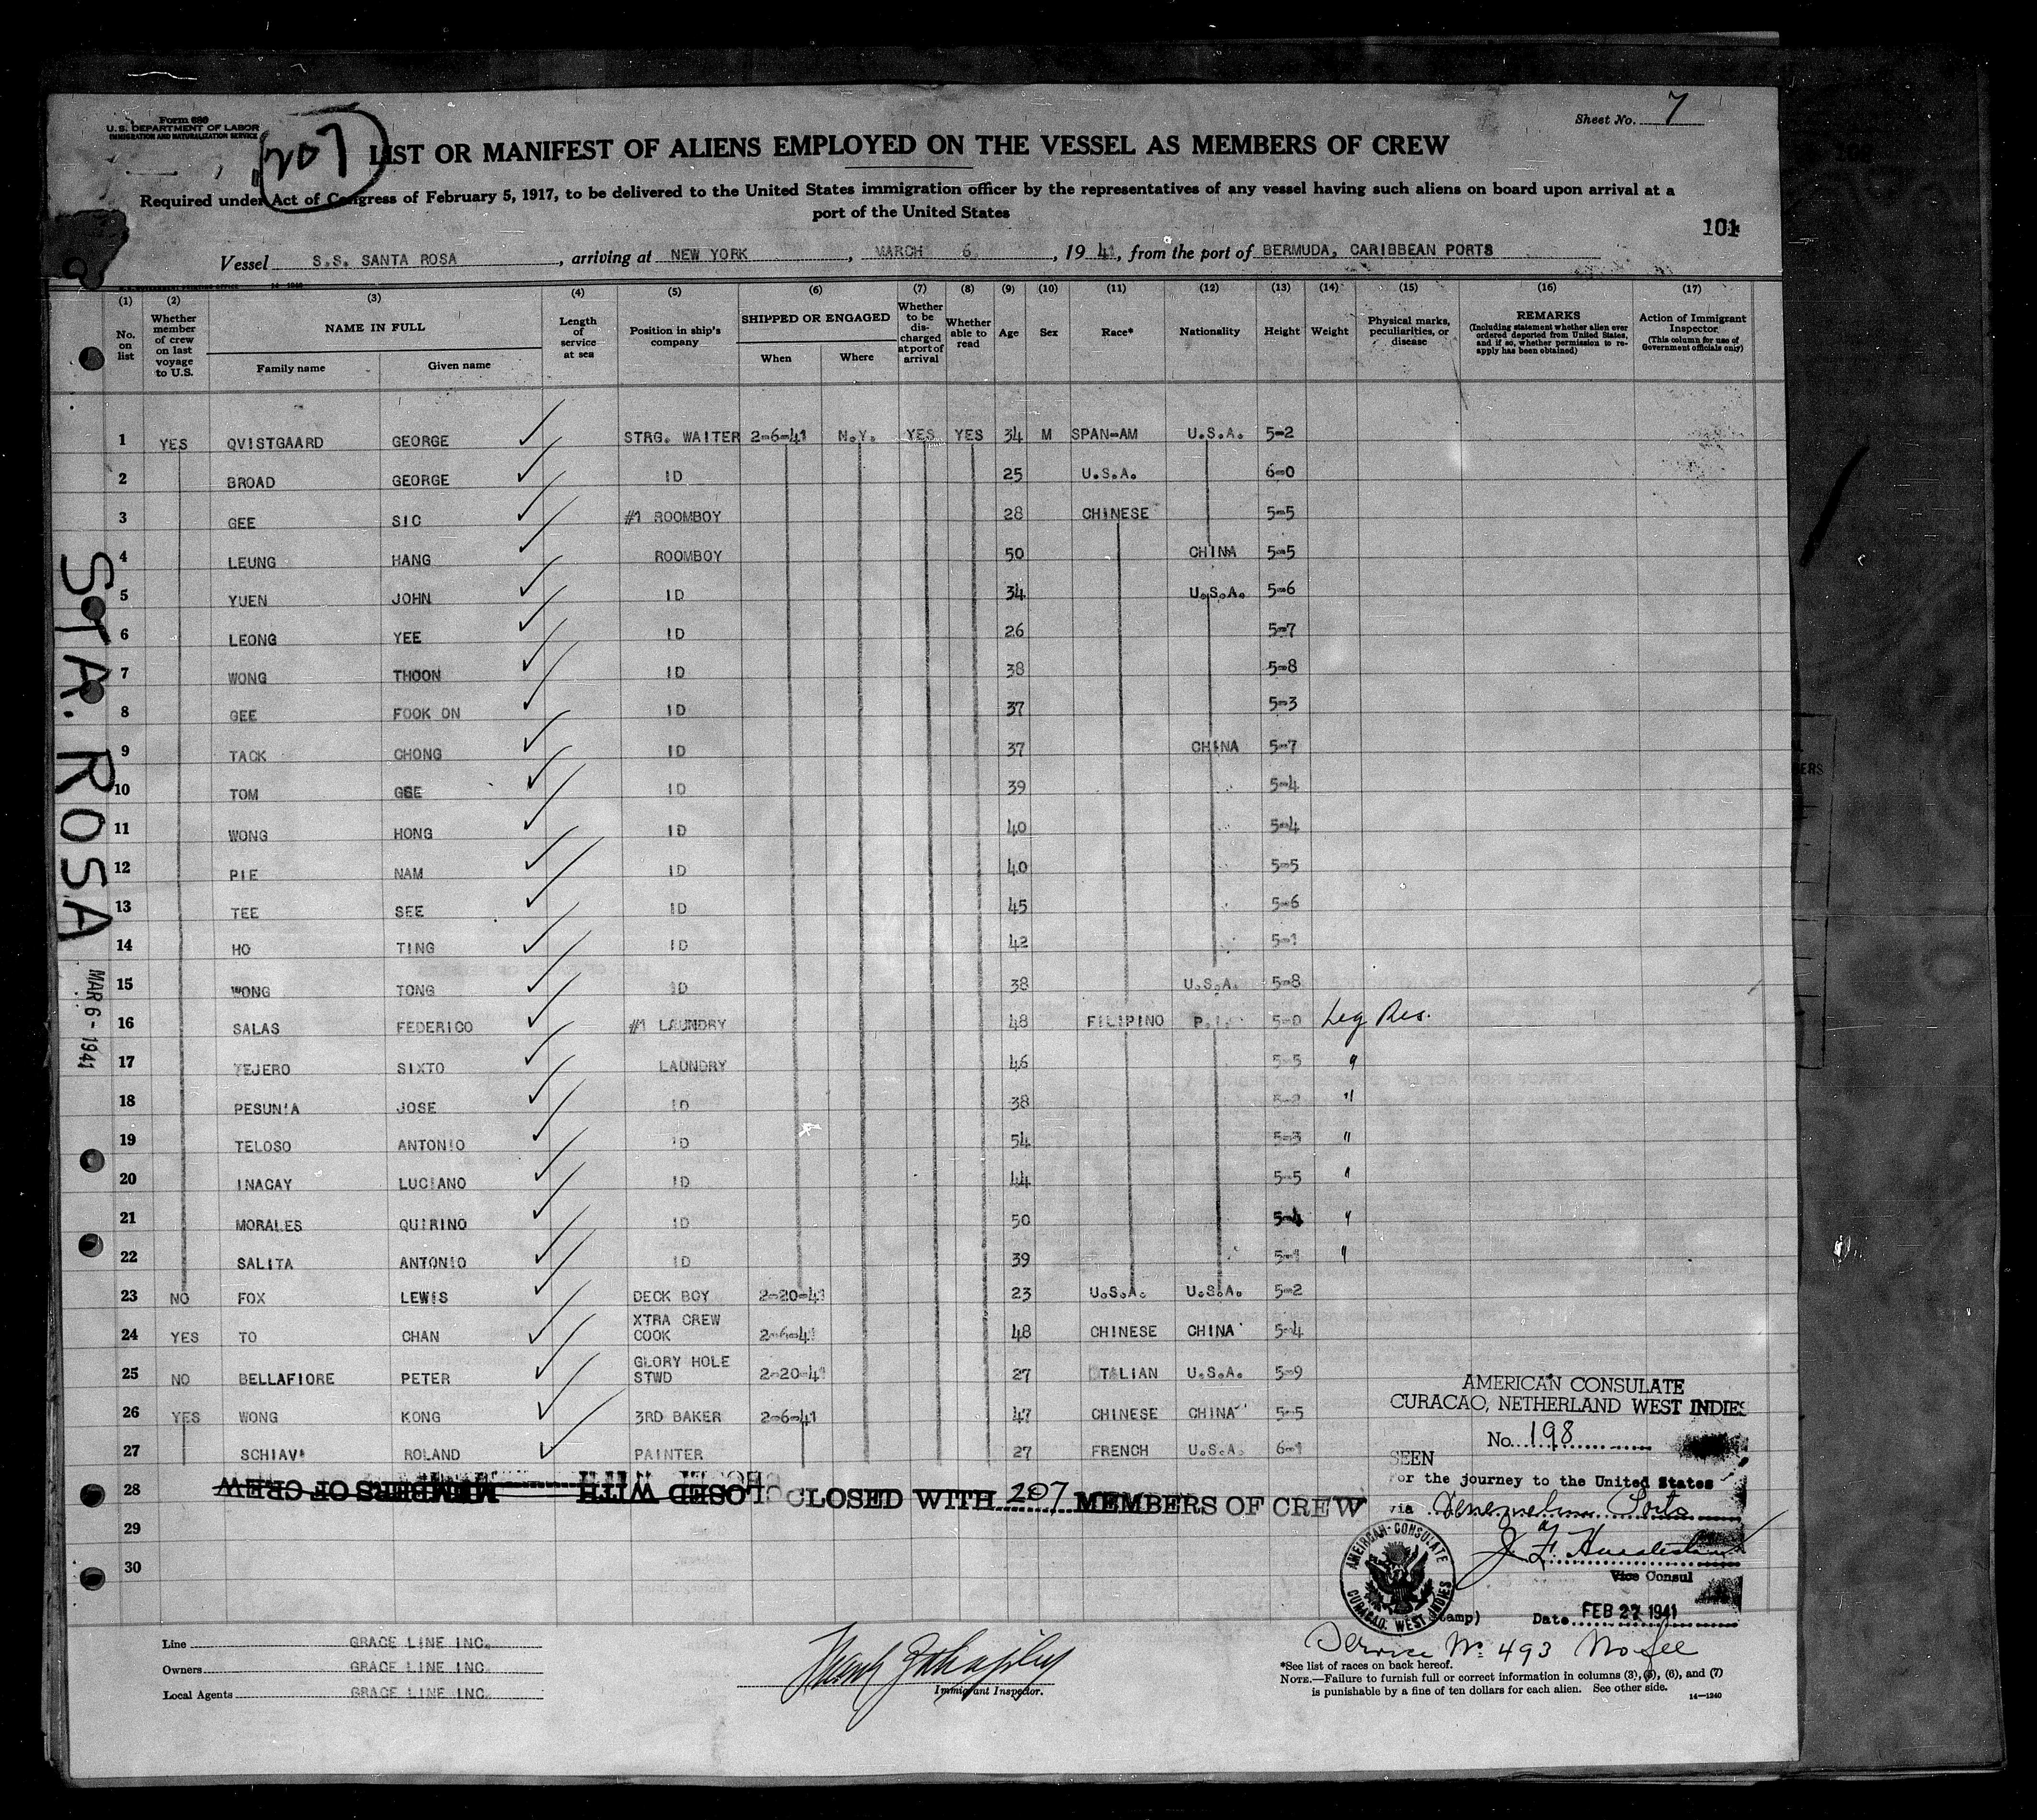 Form 680
U.S. DEPARTMENT OF LABOR
IMMIGRATION AND NATURALIZATION SERVICE
207
Sheet No. 7
LIST OR MANIFEST OF ALIENS EMPLOYED ON THE VESSEL AS MEMBERS OF CREW
Required under Act of Congress of February 5, 1917, to be delivered to the United States immigration officer by the representatives of any vessel having such aliens on board upon arrival at a
port of the United States
101
Vessel S.S. SANTA ROSA, arriving at NEW YORK, MARCH 6, 1941, from the port of BERMUDA, CARIBBEAN PORTS
(1) (2) (3) (4) (5) (6) (7) (8) (9) (10) (11) (12) (13) (14) (15) (16) (17)
No. on list
Whether member of crew on last voyage to U.S.
NAME IN FULL
Family name
Given name
Length of service at sea
Position in ship's company
SHIPPED OR ENGAGED
When
Where
Whether to be discharged at port of arrival
Whether able to read
Age
Sex
Race*
Nationality
Height
Weight
Physical marks, peculiarities, or disease
REMARKS
(Including statement whether alien ever ordered deported from United States, and if so, whether permission to reapply has been obtained)
Action of Immigrant Inspector
(This column for use of Government officials only)
1 YES QVISTGAARD GEORGE STRG. WAITER 2-6-41 N.Y. YES YES 34 M SPAN-AM U.S.A. 5-2
2 BROAD GEORGE ID 25 U.S.A. 6-0
3 GEE SIC #1 ROOMBOY 28 CHINESE 5-5
4 LEUNG HANG ROOMBOY 50 CHINA 5-5
5 YUEN JOHN ID 34 U.S.A. 5-6
6 LEONG YEE ID 26 5-7
7 WONG THOON ID 38 5-8
8 GEE FOOK ON ID 37 5-3
9 TACK CHONG ID 37 CHINA 5-7
10 TOM GEE ID 39 5-4
11 WONG HONG ID 40 5-4
12 PIE NAM ID 40 5-5
13 TEE SEE ID 45 5-6
14 HO TING ID 42 5-1
15 WONG TONG ID 38 U.S.A. 5-8
16 SALAS FEDERICO #1 LAUNDRY 48 FILIPINO P.I. 5-0 Leg Res.
17 TEJERO SIXTO LAUNDRY 46 5-5 "
18 PESUNIA JOSE ID 38 5-2 "
19 TELOSO ANTONIO ID 54 5-3 "
20 INACAY LUCIANO ID 44 5-5 "
21 MORALES QUIRINO ID 50 5-4 "
22 SALITA ANTONIO ID 39 5-1 "
23 NO FOX LEWIS DECK BOY 2-20-41 23 U.S.A. U.S.A. 5-2
24 YES TO CHAN XTRA CREW COOK 2-6-41 48 CHINESE CHINA 5-4
25 NO BELLAFIORE PETER GLORY HOLE STWD 2-20-41 27 ITALIAN U.S.A. 5-9
26 YES WONG KONG 3RD BAKER 2-6-41 47 CHINESE CHINA 5-5
27 ROLAND PAINTER 27 FRENCH U.S.A. 6-1
28 CLOSED WITH MEMBERS OF CREW CLOSED WITH 207 MEMBERS OF CREW
29
30
STA. ROSA
MAR 6-1941
AMERICAN CONSULATE
CURACAO, NETHERLAND WEST INDIES
No. 198
SEEN
For the journey to the United States
via Venezuelan Ports
Vice Consul
AMERICAN CONSULATE
CURACAO, WEST INDIES
(Stamp)
Date FEB 27 1941
Service No. 493 No fee
Line GRACE LINE INC.
Owners GRACE LINE INC.
Local Agents GRACE LINE INC.
Immigrant Inspector.
*See list of races on back hereof.
NOTE.—Failure to furnish full or correct information in columns (3), (5), (6), and (7)
is punishable by a fine of ten dollars for each alien. See other side.
14—1240